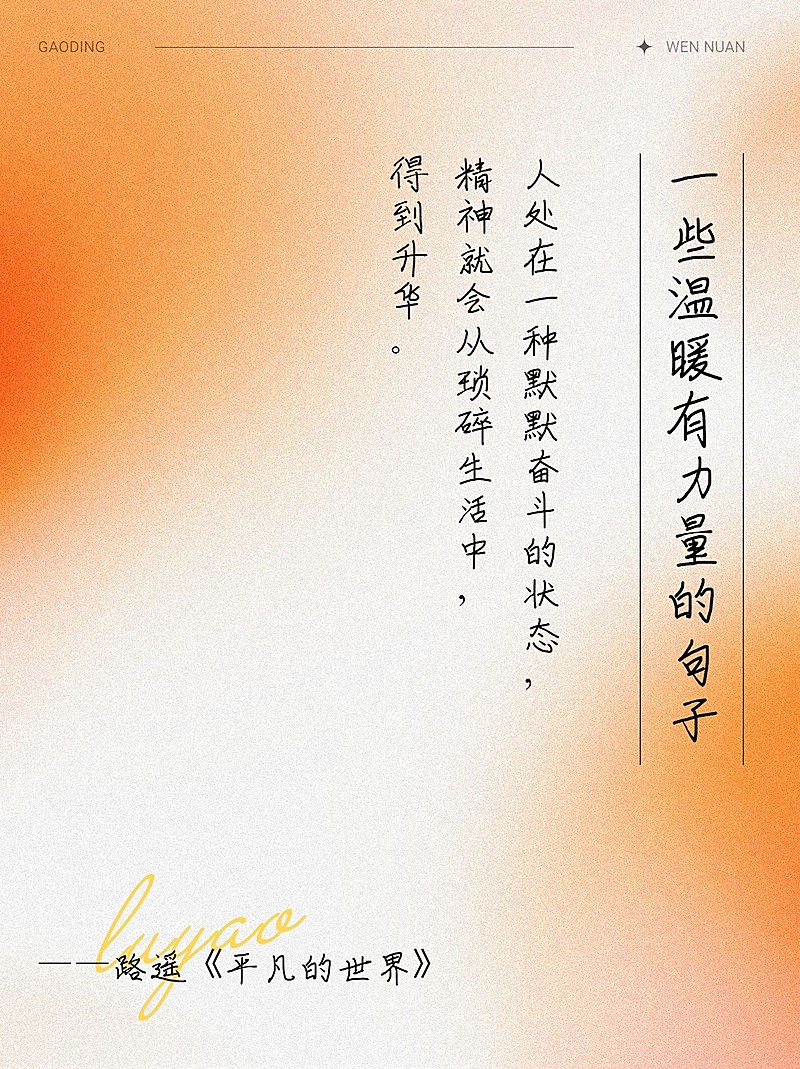 GAODING
WEN NUAN
一些温暖有力量的句子
人处在一种默默奋斗的状态，
精神就会从琐碎生活中，
得到升华。
luyao
——路遥《平凡的世界》